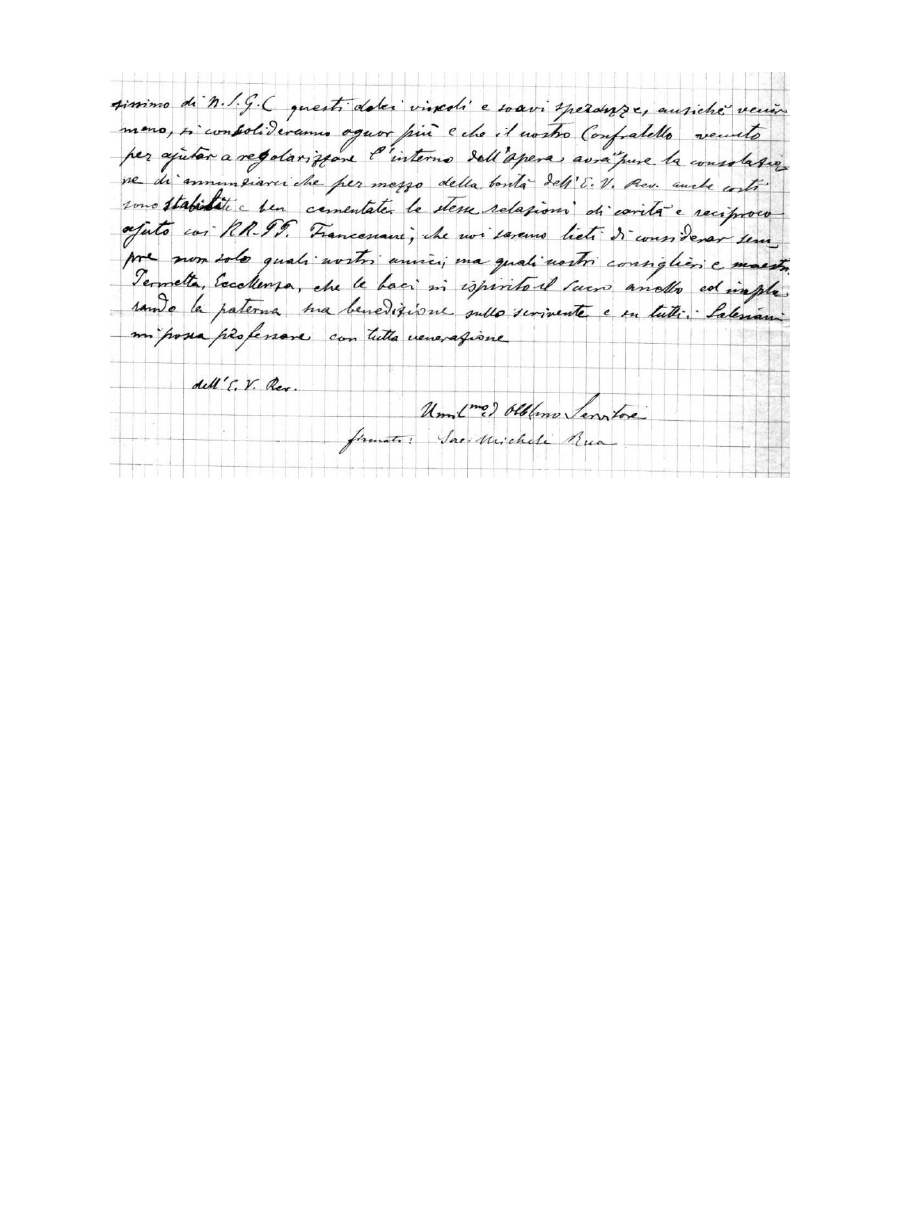 sissimo di N.S.G.C questi dolci vincoli e soavi speranze, ansichè venir
meno, si consolideranno ognor più e che il nostro Confratello venuto
per ajutar a regolarizzare l'interno dell'opera avrà pure la consolazio-
ne di annunziarci che per mezzo della bontà dell'E. V. Rev. anche costì
sono stabilite e ben cementate le stesse relazioni di carità e reciproco
ajuto coi RR. PP. Francescani, che noi saremo lieti di considerar sem-
pre non solo quali nostri amici, ma quali nostri consiglieri e maestri.
Permetta, Eccellenza, che le baci in ispirito il Sacro anello ed implo-
rando la paterna sua benedizione sullo scrivente e su tutti i Salesiani
mi possa professare con tutta venerazione
dell'E. V. Rev.
Umil(mo) ed Obb(mo Servitore
firmato: Sac. Michele Rua